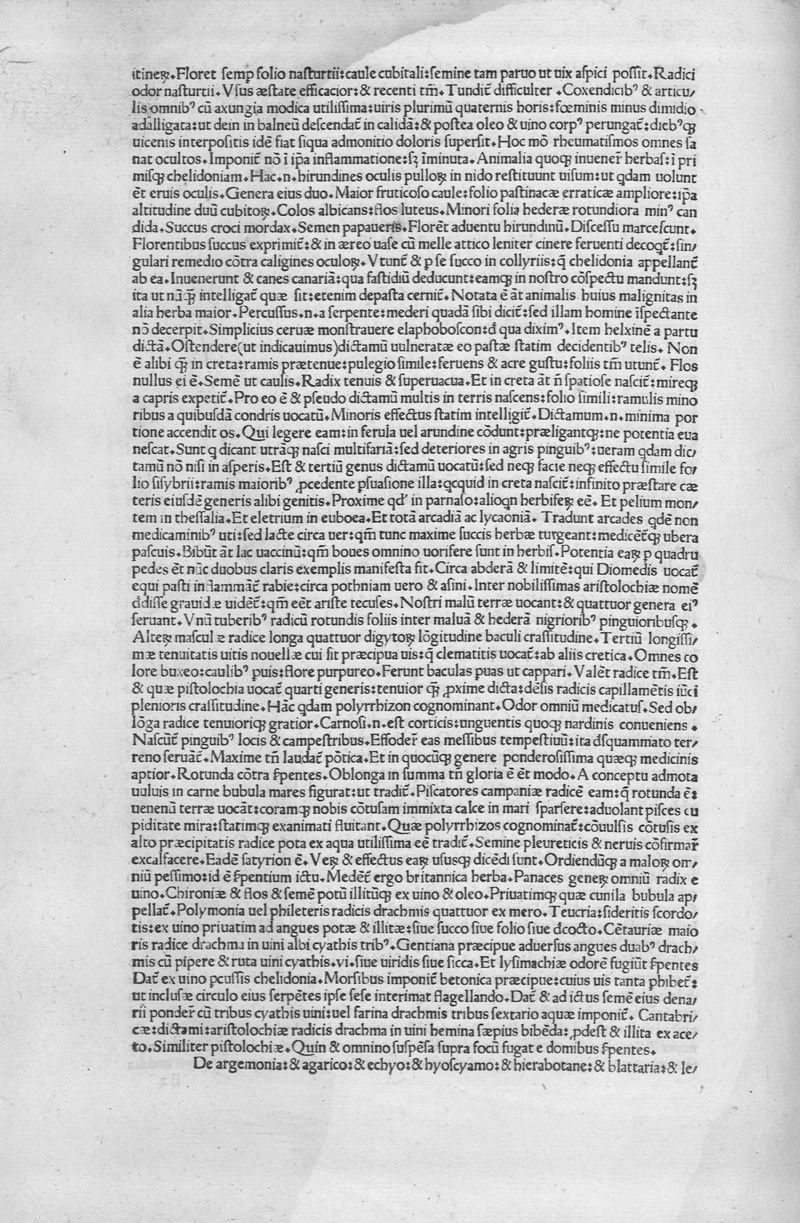 itineꝝ.Floret semp folio nasturtii:caule cubitali:semine tam paruo ut uix aspici possit.Radici
odor nasturtii.Vsus æstate efficacior:& recenti tm̄.Tundit᷑ difficulter.Coxendicibꝰ & articu/
lis omnibꝰ cū axungia modica utilissima:uiris plurimū quaternis horis:fœminis minus dimidio
adalligata:ut dein in balneū descendat᷑ in calidā:& postea oleo & uino corpꝰ perungat᷑:diebꝰꝗ
uicenis interpositis idē fiat siqua admonitio doloris supersit.Hoc mō rheumatismos omnes sa
nat ocultos.Imponit᷑ nō ī ip̄a inflammatione:sꝫ īminuta.Animalia quoqꝫ inuener̄ herbas:ī pri
misqꝫ chelidoniam.Hac.n.hirundines oculis pulloꝝ in nido restituunt uisum:ut qdam uolunt
ēt eruis oculis.Genera eius duo.Maior fruticoso caule:folio pastinacæ erraticæ ampliore:ip̄a
altitudine duū cubitoꝝ.Colos albicans:flos luteus.Minori folia hederæ rotundiora minꝰ can
dida.Succus croci mordax.Semen papaueris.Florēt aduentu hirundinū.Discessu marcescunt.
Florentibus succus exprimit᷑:& in æreo uase cū melle attico leniter cinere feruenti decoqt᷑:sin/
gulari remedio cōtra caligines oculoꝝ.Vtunt᷑ & p se succo in collyriis:q̄ chelidonia appellant᷑
ab ea.Inuenerunt & canes canariā:qua fastidiū deducunt:eamqꝫ in nostro cōspectu mandunt:sꝫ
ita ut nūqꝫ intelligat᷑ quæ sit:etenim depasta cernit᷑.Notata ē āt animalis huius malignitas in
alia herba maior.Percussus.n.a serpente:mederi quadā sibi dicit᷑:sed illam homine īspectante
nō decerpit.Simplicius ceruæ monstrauere elaphoboscon:d qua diximꝰ.Item helxinē a partu
dictā.Ostendere(ut indicauimus)dictamū uulneratæ eo pastæ statim decidentibꝰ telis. Non
ē alibi qꝫ in creta:ramis prætenue:pulegio simile:feruens & acre gustu:foliis tm̄ utunt᷑.Flos
nullus ei ē.Semē ut caulis.Radix tenuis & superuacua.Et in creta āt n̄ spatiose nascit᷑:mireqꝫ
a capris expetit᷑.Pro eo ē & pseudo dictamū multis in terris nascens:folio simili:ramulis mino
ribus a quibusdā condris uocatū.Minoris effectus statim intelligit᷑.Dictamum.n.minima por
tione accendit os.Qui legere eam:in ferula uel arundine cōdunt:præligantqꝫ:ne potentia eua
nescat.Sunt q dicant utrāqꝫ nasci multifariā:sed deteriores in agris pinguibꝰ:ueram qdam dic/
tamū nō nisi in asperis.Est & tertiū genus dictamū uocatū:sed neqꝫ facie neqꝫ effectu simile fo/
lio sisybrii:ramis maioribꝰ ꝓcedente psuasione illa:qcquid in creta nascit᷑:infinito præstare cæ
teris eiusdē generis alibi genitis.Proxime qd' in parnaso:alioqn herbifeꝝ eē. Et pelium mon/
tem in thessalia.Et eletrium in euboea.Et totā arcadiā ac lycaoniā. Tradunt arcades qdē non
medicaminibꝰ uti:sed lacte circa uer:qm̄ tunc maxime succis herbæ turgeant:medicēt᷑qꝫ ubera
pascuis.Bibūt āt lac uaccinū:qm̄ boues omnino uorifere sunt in herbis.Potentia eaꝝ p quadru
pedes ēt nūc duobus claris exemplis manifesta fit.Circa abderā & limitē:qui Diomedis uocat᷑
equi pasti inflammāt᷑ rabie:circa pothniam uero & asini.Inter nobilissimas aristolochiæ nomē
ddisse grauidæ uidēt᷑:qm̄ eēt ariste tecuses.Nostri malū terræ uocant:& quattuor genera eiꝰ
feruant.Vnū tuberibꝰ radicū rotundis foliis inter maluā & hederā nigrioribꝰ pinguioribusqꝫ.
Alteꝝ masculæ radice longa quattuor digytoꝝ lōgitudine baculi crassitudine.Tertiū longissi/
mæ tenuitatis uitis nouellæ cui sit præcipua uis:q̄ clematitis uocat᷑:ab aliis cretica.Omnes co
lore buxeo:caulibꝰ puis:flore purpureo.Ferunt baculas puas ut cappari.Valēt radice tm̄.Est
& quæ pistolochia uocat᷑ quarti generis:tenuior qꝫ ꝓxime dicta:dēsis radicis capillamētis iūci
plenioris crassitudine.Hāc qdam polyrrhizon cognominant.Odor omniū medicatus.Sed ob/
lōga radice tenuioriqꝫ gratior.Carnosi.n.est corticis:unguentis quoqꝫ nardinis conueniens.
Nascūt᷑ pinguibꝰ locis & campestribus.Effoder̄ eas messibus tempestiuū:ita dsquammato ter/
reno seruāt᷑.Maxime tn̄ laudat᷑ pōtica.Et in quocūqꝫ genere ponderosissima quæqꝫ medicinis
aptior.Rotunda cōtra s̄pentes.Oblonga in summa tn̄ gloria ē ēt modo.A conceptu admota
uuluis in carne bubula mares figurat:ut tradit᷑.Piscatores campaniæ radicē eam:q̄ rotunda ē:
uenenū terræ uocāt:coramqꝫ nobis cōtusam immixta calce in mari sparsere:aduolant pisces cu
piditate mira:statimqꝫ exanimati fluitant.Quæ polyrrhizos cognominat᷑:cōuulsis cōtusis ex
alto præcipitatis radice pota ex aqua utilissima eē tradit᷑.Semine pleureticis & neruis cōfirmar̄
excalfacere.Eadē satyrion ē.Veꝝ & effectus eaꝝ ususqꝫ dicēdi sunt.Ordiendūqꝫ a maloꝝ om/
niū pessimo:id ē s̄pentium ictu.Medēt᷑ ergo britannica herba.Panaces geneꝝ omniū radix e
uino.Chironiæ & flos & semē potū illitūqꝫ ex uino & oleo.Priuatimqꝫ quæ cunila bubula ap/
pellat᷑.Polymonia uel phileteris radicis drachmis quattuor ex mero.Teucria:sideritis scordo/
tis:ex uino priuatim ad angues potæ & illitæ:siue succo siue folio siue dcocto.Cētauriæ maio
ris radice drachma in uini albi cyathis tribꝰ.Gentiana præcipue aduersus angues duabꝰ drach/
mis cū pipere & ruta uini cyathis.vi.siue uiridis siue sicca.Et lysimachiæ odorē fugiūt s̄pentes
Dat᷑ ex uino pcussis chelidonia.Morsibus imponit᷑ betonica præcipue:cuius uis tanta phibet᷑:
ut inclusæ circulo eius serpētes ipse sese interimat flagellando.Dat᷑ & ad ictus semē eius dena/
rii ponder̄ cū tribus cyathis uini:uel farina drachmis tribus sextario aquæ imponit᷑. Cantabri/
cæ:dictami:aristolochiæ radicis drachma in uini hemina sæpius bibēda:ꝓdest & illita ex ace/
to.Similiter pistolochiæ.Quin & omnino suspēsa supra focū fugat e domibus s̄pentes.
De argemonia:& agarico:& echyo:& hyoscyamo:& hierabotane:& blattaria:& le/